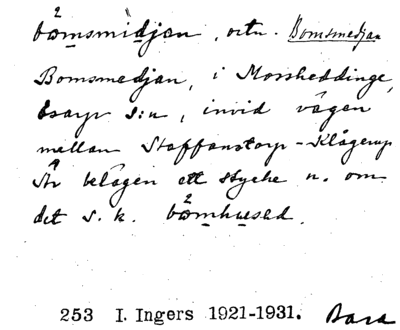 bomsmidjan, ortn. Bomsmedjan
Bomsmedjan, i Mossheddinge,
Esarps s:n, invid vägen
mellan Staffanstorp-Klågerup
är belägen ett stycke n. om
det s.k. bomhused.
253 I. Ingers 1921-1931. Bara